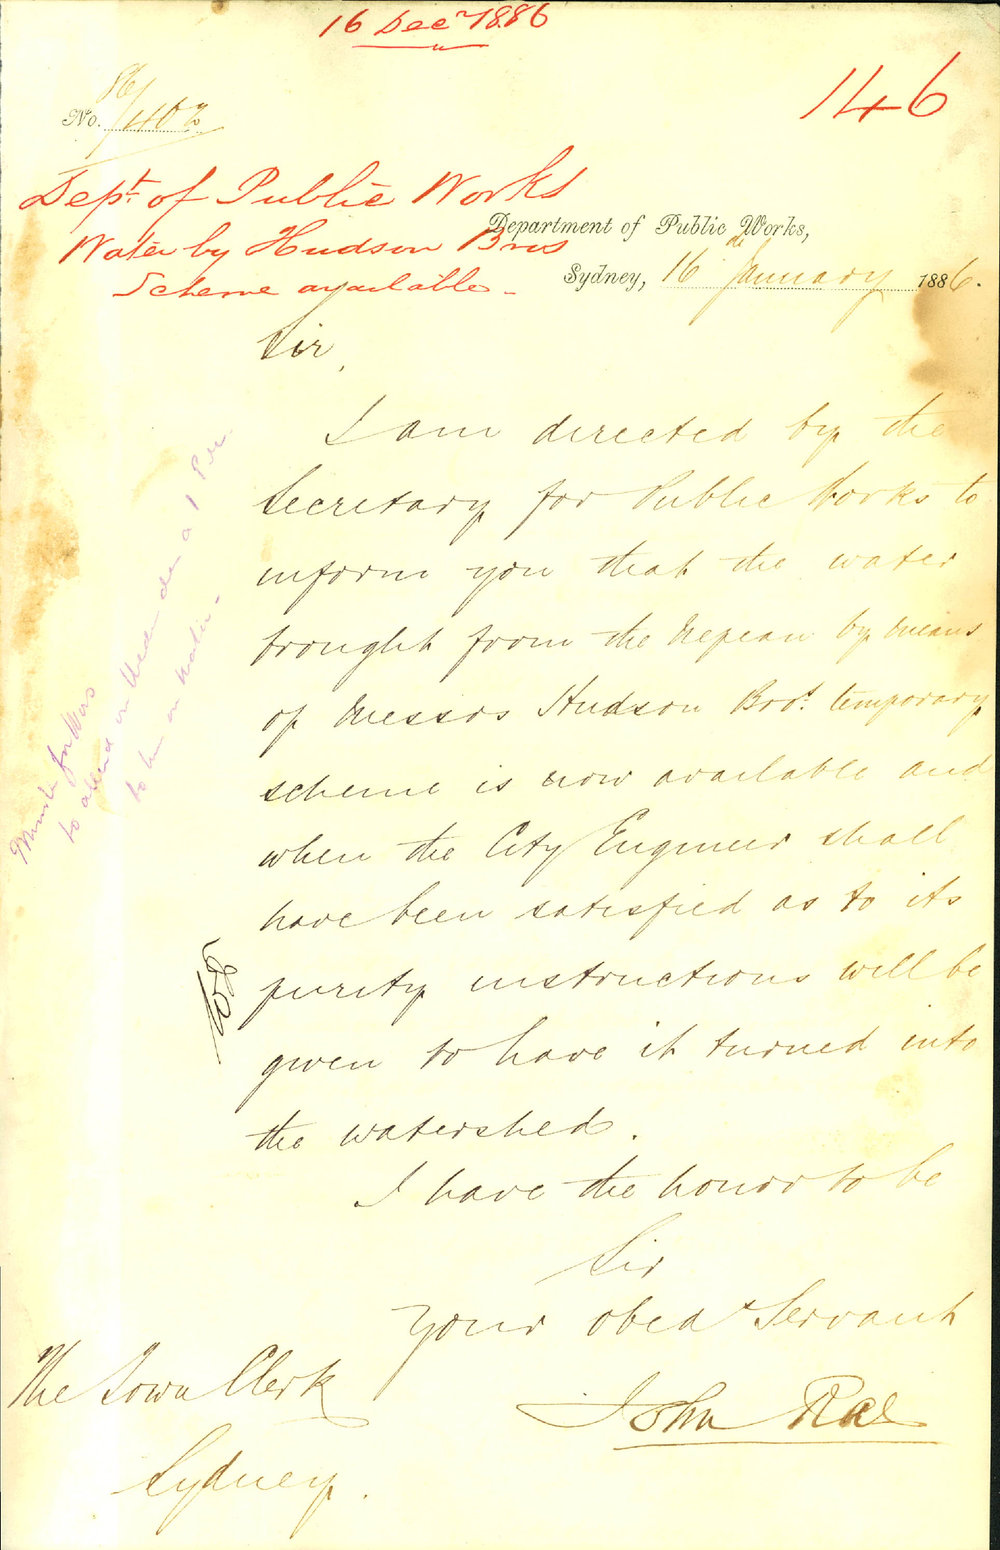 16 Decr 1886
146
No. 86/402
Dept. of Public Works
Water by Hudson Bros
Scheme available -
Department of Public Works,
Sydney, 16 January 1886.
Sir,
I am directed by the
Secretary for Public Works to
inform you that the water
brought from the Nepean by means
of Messrs Hudson Bros. temporary
scheme is now available and
when the City Engineer shall
have been satisfied as to its
purity instructions will be
given to have it turned into
the watershed.
I have the honor to be
Sir
Your obedt Servant
John Rae
The Town Clerk
Sydney.
to attend on